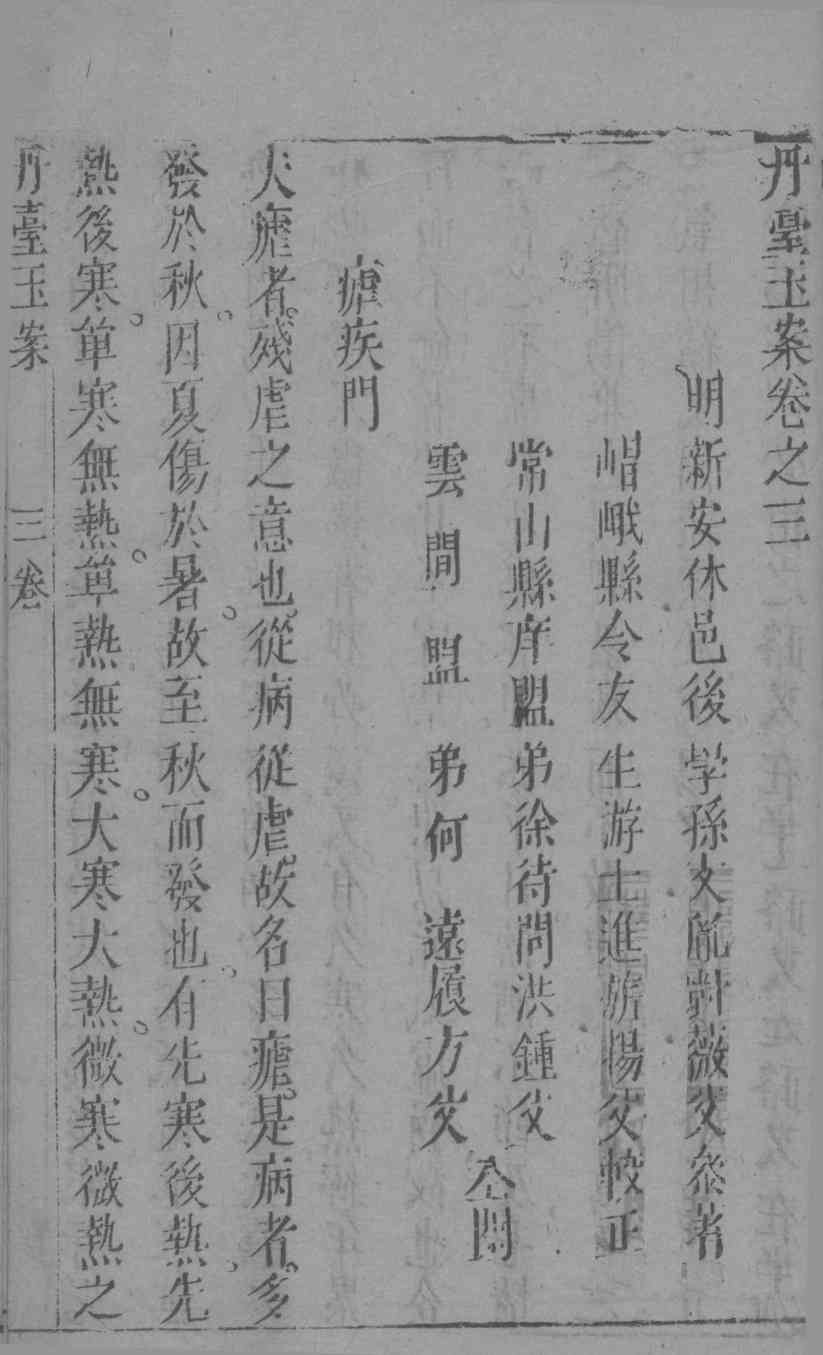 丹臺玉案卷之三
明新安休邑後學孫文胤對薇父叅著
嵋峨縣令友生游士進旂揚父較正
常山縣庠盟弟徐待問洪鍾父
雲間盟弟何遠履方父
仝閱
瘧疾門
夫瘧者殘虐之意也從病從虐故名曰瘧是病者多
發於秋因夏傷於暑故至秋而發也有先寒後熱先
熱後寒單寒無熱單熱無寒大寒大熱微寒微熱之
丹臺玉案 三卷